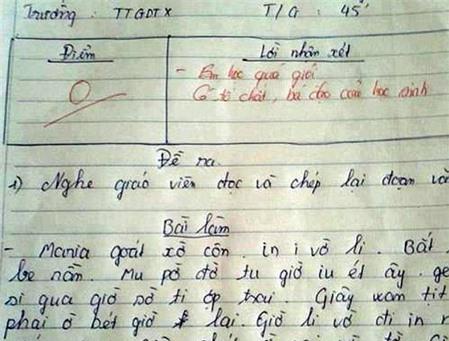 Trường : TTGDTX T/G : 45'
Điểm Lời nhận xét
0 - Em học quá giỏi
Có tố chất, bá đạo của học sinh
Đề ra
1) Nghe giáo viên đọc và chép lại đoạn
Bài làm
- Mania goát xờ côn. in i vờ li. Bát
be nằm. Mu pờ đờ tu giờ iu ét ây. ge
si qua giờ sờ ti ợp trai. Giây wam tit
phai ờ bét giờ lai. Giờ li vờ đi in